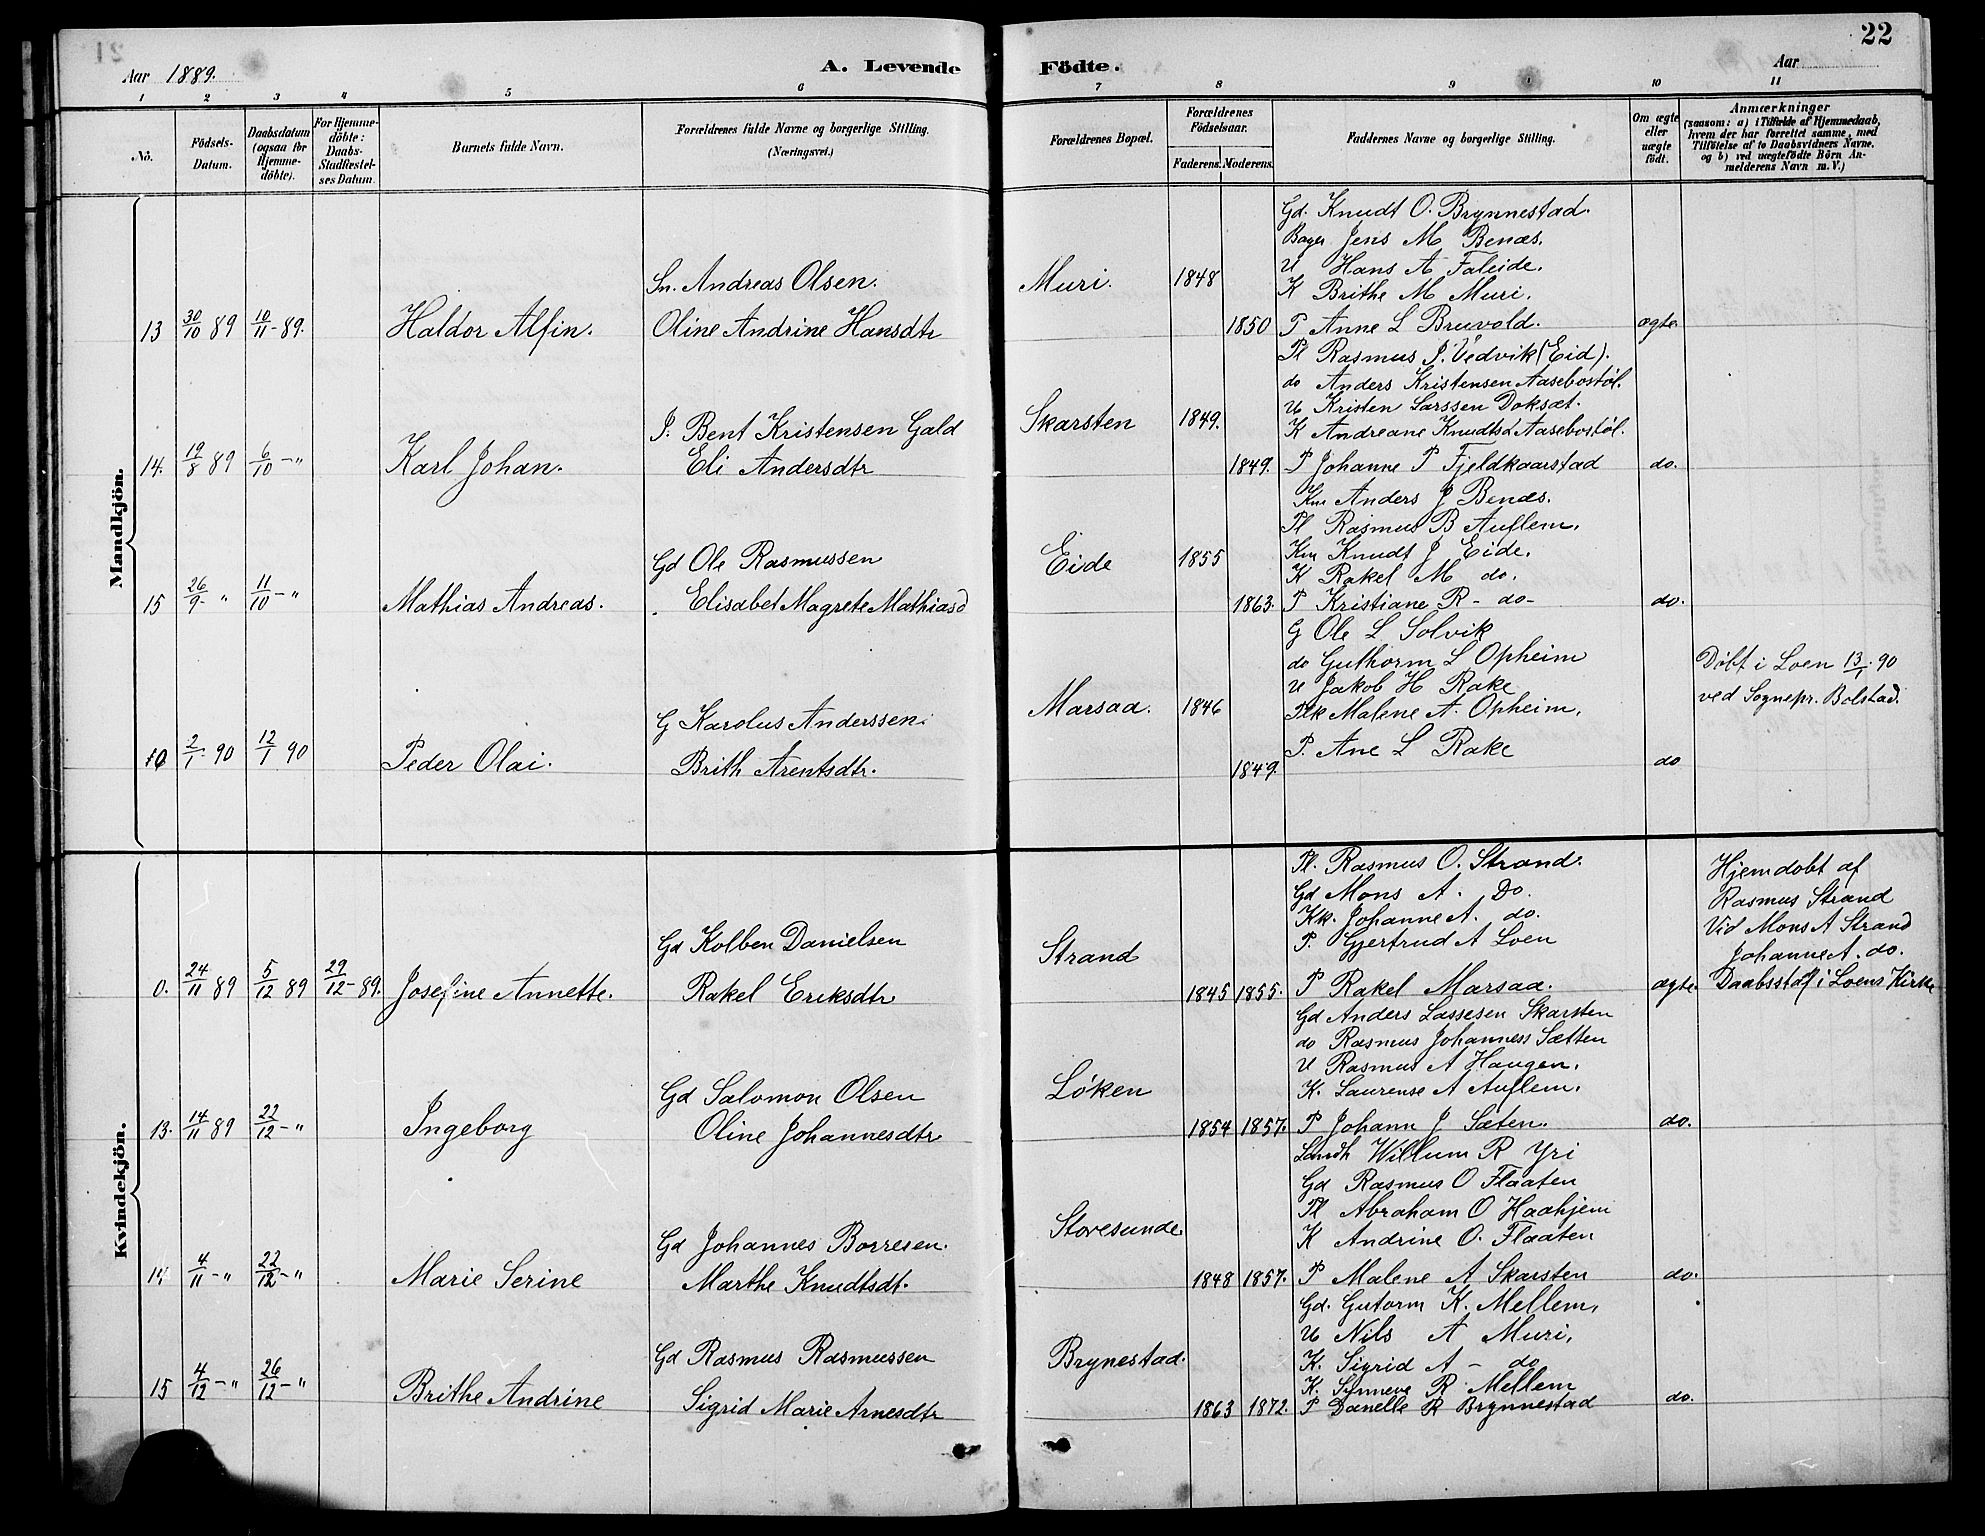 21
22
Aar 1889.
A. Levende Födte.
Aar
1 2 3 4 5 6 7 8 9 10 11
No.
Födsels-
Datum.
Daabsdatum
(ogsaa for
Hjemme-
döbte).
For Hjemme-
döbte:
Daabs-
Stadfæstel-
ses Datum.
Barnets fulde Navn.
Forældrenes fulde Navne og borgerlige Stilling.
(Næringsvei.)
Forældrenes Bopæl.
Forældrenes
Födselsaar.
Faderens. Moderens.
Faddernes Navne og borgerlige Stilling.
Om ægte
eller
uægte
födt.
Anmærkninger
(saasom: a) i Tilfælde af Hjemmedaab,
hvem der har forrettet samme, med
Tilföielse af to Daabsvidners Navne,
og b) ved uægtefödte Börn An-
melderens Navn m. V.)
Mandkjön.
Gd. Knudt O. Brynnestad.
Jens M Benæs.
U Hans A Faleide.
Sn. Andreas Olsen. Muri. 1848 K Brithe M Muri.
13 30/10 89 10/11-89. Haldor Alfin. Oline Andrine Hansdtr 1850 P Anne L Bruvold. ægte.
Pl Rasmus J. Vedvik (Eid).
do Anders Kristensen Aasebostøl.
U Kristen Larssen Doksæt.
J. Bent Kristensen Gald Skarsten 1849. K Andreane Knudtsd Aasebostøl.
14. 19/8 89 6/10 -" Karl Johan. Eli Andersdtr 1849. P Johanne P Fjeldkaarstad do.
Km Anders J Benæs.
Pl Rasmus B Auflem.
Gd Ole Rasmussen Eide 1855 Km Knudt J Eide.
K Rakel M do.
15 26/9- " 11/10 -" Mathias Andreas. Elisabet Magrete Mathiasd 1863. P Kristiane R - do - do.
G Ole L Solvik
do Guthorm L Opheim Døbt i Loen 13/1 90
U Jakob H Rake ved Sognepr. Bolstad.
G Karolus Anderssen. Marsaa. 1846 Malene A. Opheim.
2/1. 90 12/1 90 Peder Olai. Brith Arentsdtr. 1849. P. Ane L Rake do
Kvindekjön.
Pl. Rasmus O. Strand. Hjemdøbt af
Gd Mons A. Do. Rasmus Strand
Kk. Johanne A. do. Vid Mons A Strand
Gd Kolben Danielsen Strand P. Gjertrud A Loen Johanne A. do.
0. 24/11 89 5/12 89 29/12-89. Josefine Annette. Rakel Eriksdtr 1845 1855. P Rakel Marsaa. ægte. Daabsstaf i Loens Kirke
Gd Anders Lassesen Skarsten
do Rasmus Johanness Sætten
U Rasmus A Haugen.
Gd Salomon Olsen Löken K. Laurense A Auflem.
13. 14/11 89 22/12 -" Ingeborg Oline Johannesdtr 1854 1857. P Johann J Sæten. do.
Landh Willum R Yri
Gd Rasmus O Flaaten
Pl Abraham O Haahjem
Gd Johannes Borresen. Storesunde K Andrine O. Flaaten
14 4/11 -" 22/12 -" Marie Serine Marthe Knudtsdt. 1848 1857. P Malene A Skarsten do.
Gd. Gutorm K. Mellem.
U Nils A Muri.
Gd Rasmus Rasmussen Brynestad. K. Sigrid A - do
K. Synneve R Mellem
15 4/12 -" 26/12 -" Brithe Andrine Sigrid Marie Arnesdtr 1863 1872. P Danelle R Brynnestad do.